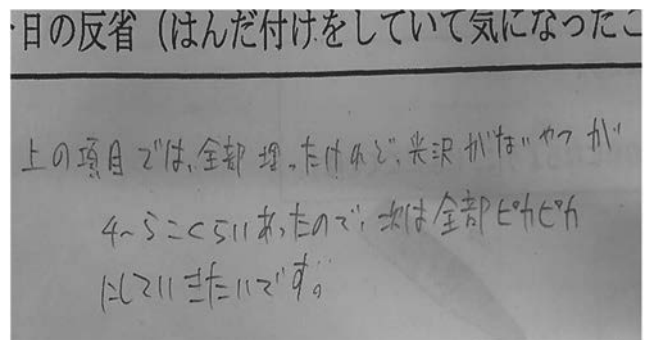 日の反省（はんだ付けをしていて気になったこ
上の項目では、全部埋ったけれど、光沢がないやつが
4～5こくらいあったので、次は全部ピカピカ
にしていきたいです。